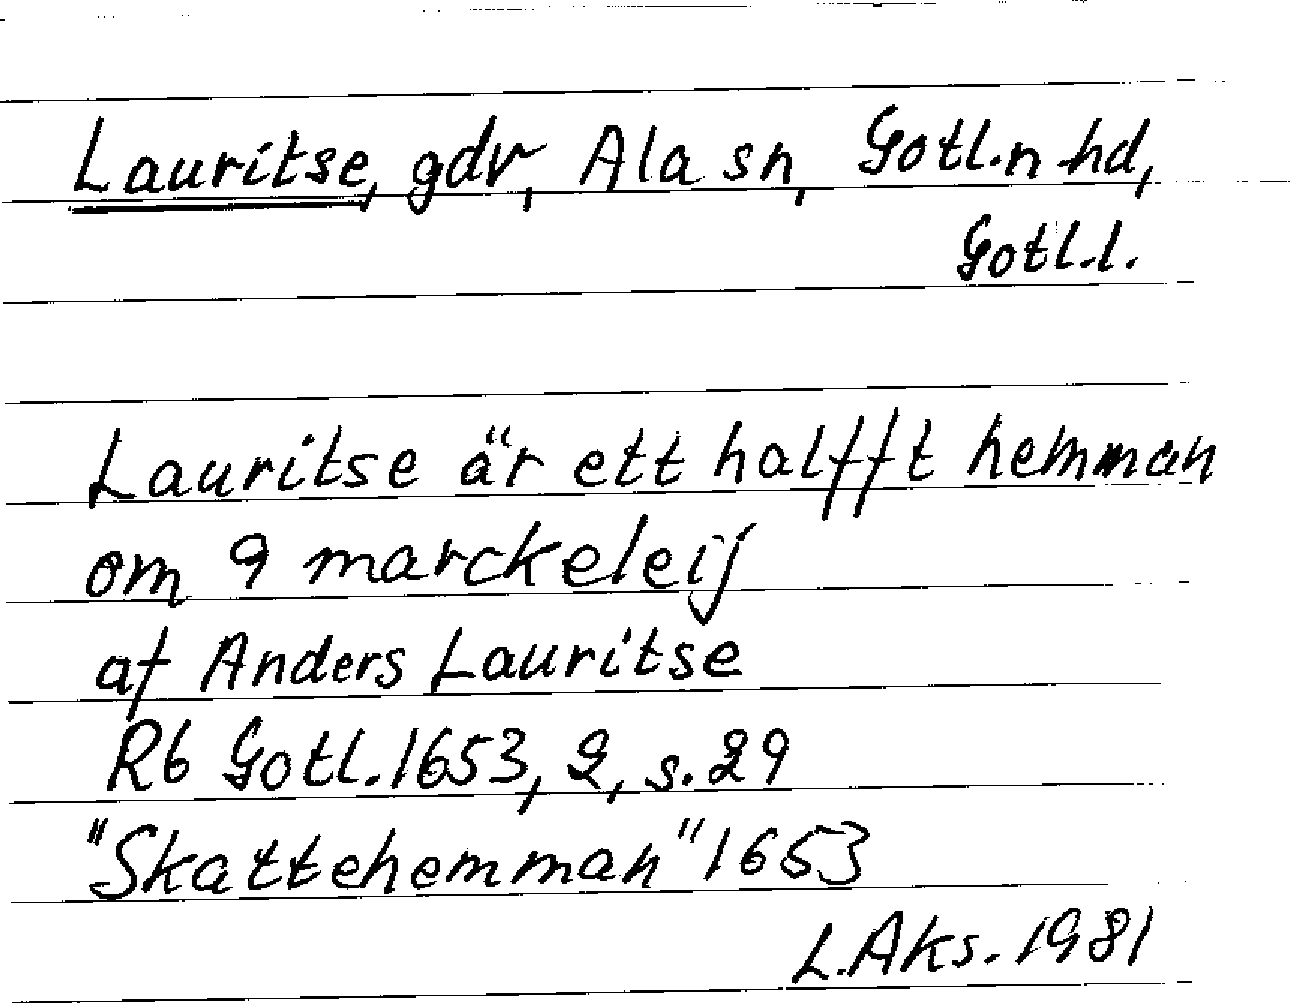 Lauritse, gdr, Ala sn, Gotl.n hd,
Gotl.l.
Lauritse är ett halfft hemman
om 9 marckeleij
af Anders Lauritse
Rb Gotl. 1653, 2, s. 29
"Skattehemman" 1653
L.Aks. 1981